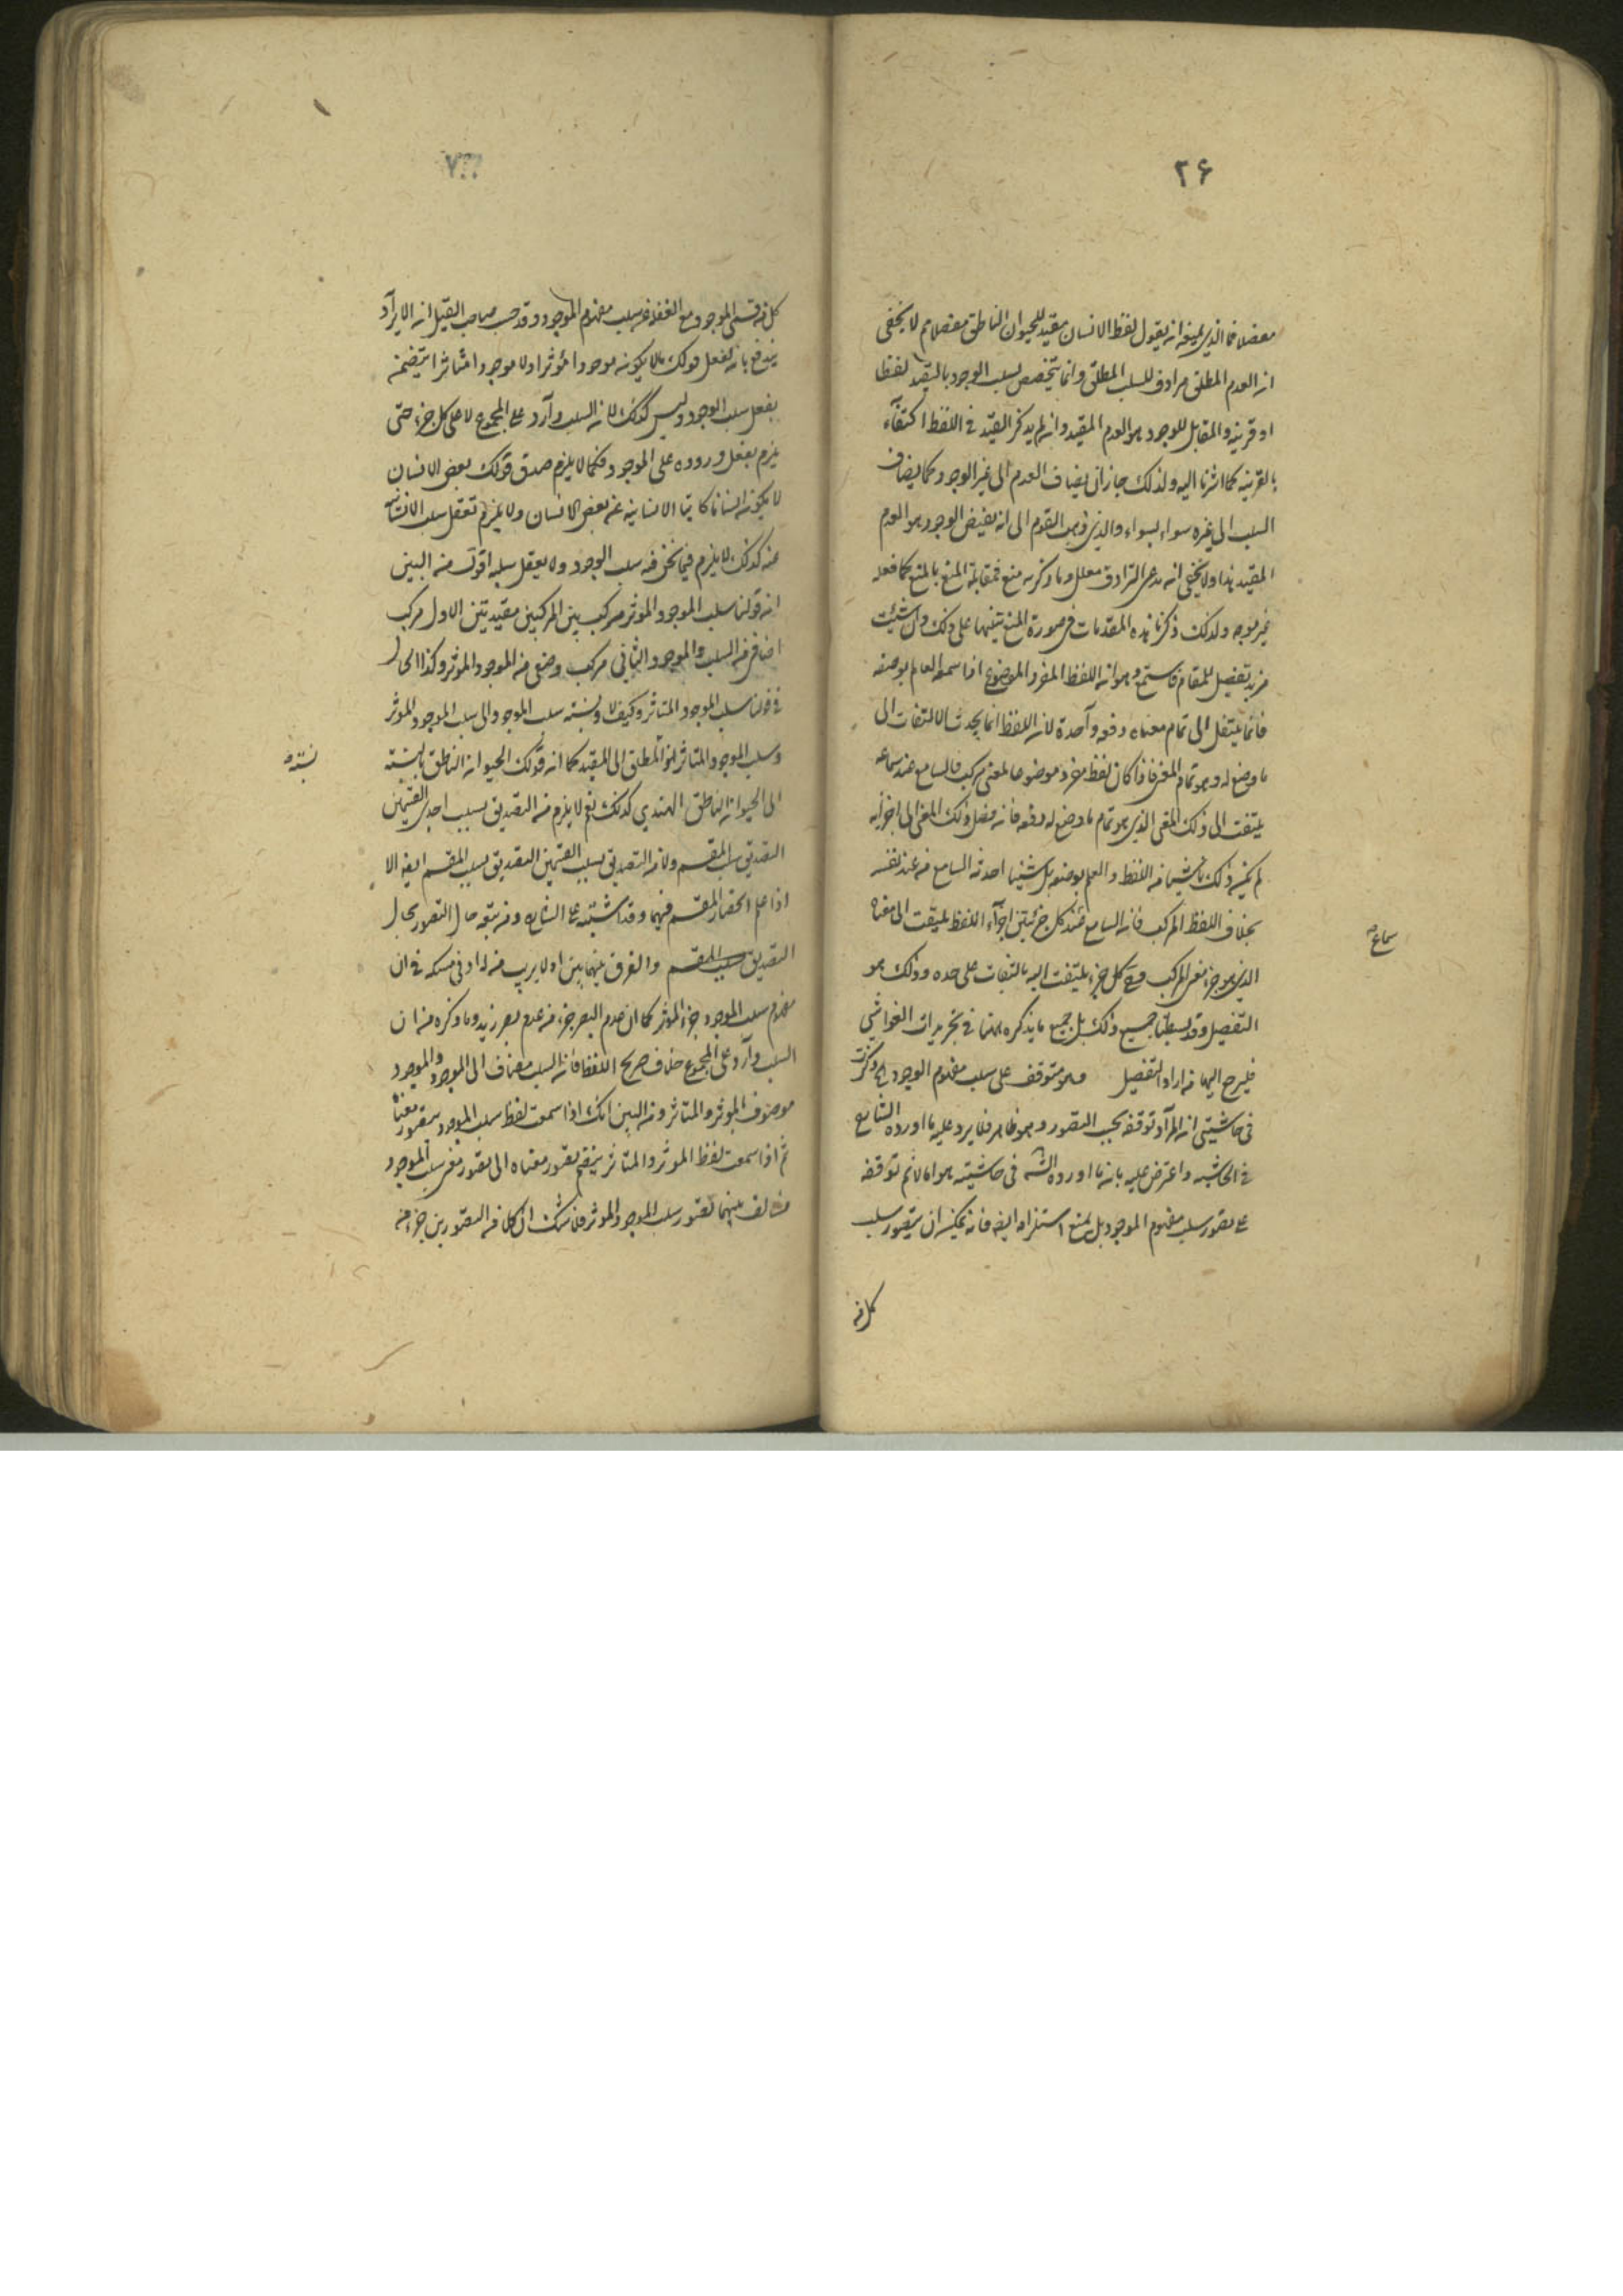 ٢۶
مفصلا فما الذي يمنعه ان يقول لفظ الانسان مقيد للحيوان الناطق مفصلا ثم لا يخفى
ان العدم المطلق مرادف للسلب المطلق وانما يتخصص بسلب الوجود بالتقييد لفظا
او قرينة والمقابل للوجود هو العدم المقيد وان لم يذكر القيد في اللفظ اكتفاء
بالقرينة كما اشرنا اليه ولذلك جاز ان يضاف العدم الى غير الوجود كما يضاف
السلب الى غيره سواء بسواء والذي ذهب القوم الى انه نقيض الوجود هو العدم
المقيد هذا ولا يخفى انه مدعى الترادف معلل وما ذكره منع فمقابلة المنع بالمنع كما فعله
غير موجه ولذلك ذكرنا هذه المقدمات في صورة المنع تنبيها على ذلك وان شئت
مزيد تفصيل للمقام فاستمع وهو ان اللفظ المفرد الموضوع اذا سمعه العالم بوضعه
فانما ينتقل الى تمام معناه دفعة واحدة لان اللفظ انما يحدث الالتفات الى
ما وضع له وهو تمام المعنى فاذا كان لفظ مفرد موضوعا لمعنى مركب فالسامع عند سماعه
يلتفت الى ذلك المعنى الذي هو تمام ما وضع له دفعة فان فصل ذلك المعنى الى اجزائه
لم يكن ذلك ناشيا من اللفظ والعلم بوضعه بل شيئا احدثه السامع من عند نفسه
بخلاف اللفظ المركب فان السامع عند كل جزء من اجزاء اللفظ يلتفت الى معناه
سماع صح
الذي هو جزء معنى المركب فمع كل جزء يلتفت اليه بالتفات على حده وذلك هو
التفصيل وقد بسطنا جميع ذلك بل جميع ما يذكره ههنا في تجريدات الغواشي
فليرجع اليها من اراد التفصيل وهو متوقف على سلب مفهوم الوجود ذكرت
في حاشيتي ان المراد توقفه بحسب التصور وهو ظاهر فلا يرد عليه ما اورده الشارح
في الحاشية واعترض عليه بان ما اورده الشه في حاشيته هو انا لا نم توقفه
على تصور سلب مفهوم الموجود بل يمنع استلزامه ايضه فانه يمكن ان يتصور سلب
كل من
٢٧
كل من قسمي الموجود مع الغفلة عن سلب مفهوم الموجود وقد حسب صاحب القيل ان الايراد
يندفع بان تعقل قولك ما لا يكون موجودا مؤثرا ولا موجودا متاثرا يتضمن
تعقل سلب الوجود وليس كذلك لان السلب وارد على المجموع لا على كل جزء حتى
يلزم تعقل وروده على الموجود فكما لا يلزم صدق قولك بعض الانسان
لا يكون انسانا كاتبا الانسانية عن بعض الانسان ولا يلزم تعقل سلب الانسان
عنه كذلك لا يلزم فيما نحن فيه سلب الوجود ولا تعقل سلبه اقول من البين
ان قولنا سلب الموجود المؤثر مركب بين المركبين مقيديتين الاول مركب
اضافي من السلب والموجود والثاني مركب وصفي من الموجود والمؤثر وكذا الحال
في قولنا سلب الموجود المتاثر وكيف لا ونسبة سلب الموجود الى سلب الموجود المؤثر
وسلب الموجود المتاثر نحو المطلق الى المقيد كما ان قولك الحيوان الناطق بالنسبة
نسبته
الى الحيوان الناطق الهندي كذلك نعم لا يلزم من التصديق بسلب احدى القسمين
التصديق بسلب المقسم ولا من التصديق بسلب القسمين التصديق بسلب المقسم ايضه الا
اذا علم انحصار المقسم فيهما وقد اشتبه على الشارح ومن تبعه حال التصور بحال
التصديق بسلب المقسم والفرق بينهما بين اولا يرتب من له ادنى مسكة في ان
مفهوم سلب الموجود جزء المؤثر كما ان عدم البصر جزء من عدم بصر زيد وما ذكره من ان
السلب وارد على المجموع خلاف صريح اللفظ فان السلب مضاف الى الموجود والموجود
موصوف بالمؤثر والمتاثر ومن البين انك اذا سمعت لفظ سلب الموجود تتصور معناه
ثم اذا سمعت لفظ المؤثر والمتاثر ينضم تصور معناه الى تصور معنى سلب الموجود
فتالف منهما تصور سلب الموجود المؤثر فلا شك ان كلا من التصورين جزء منه